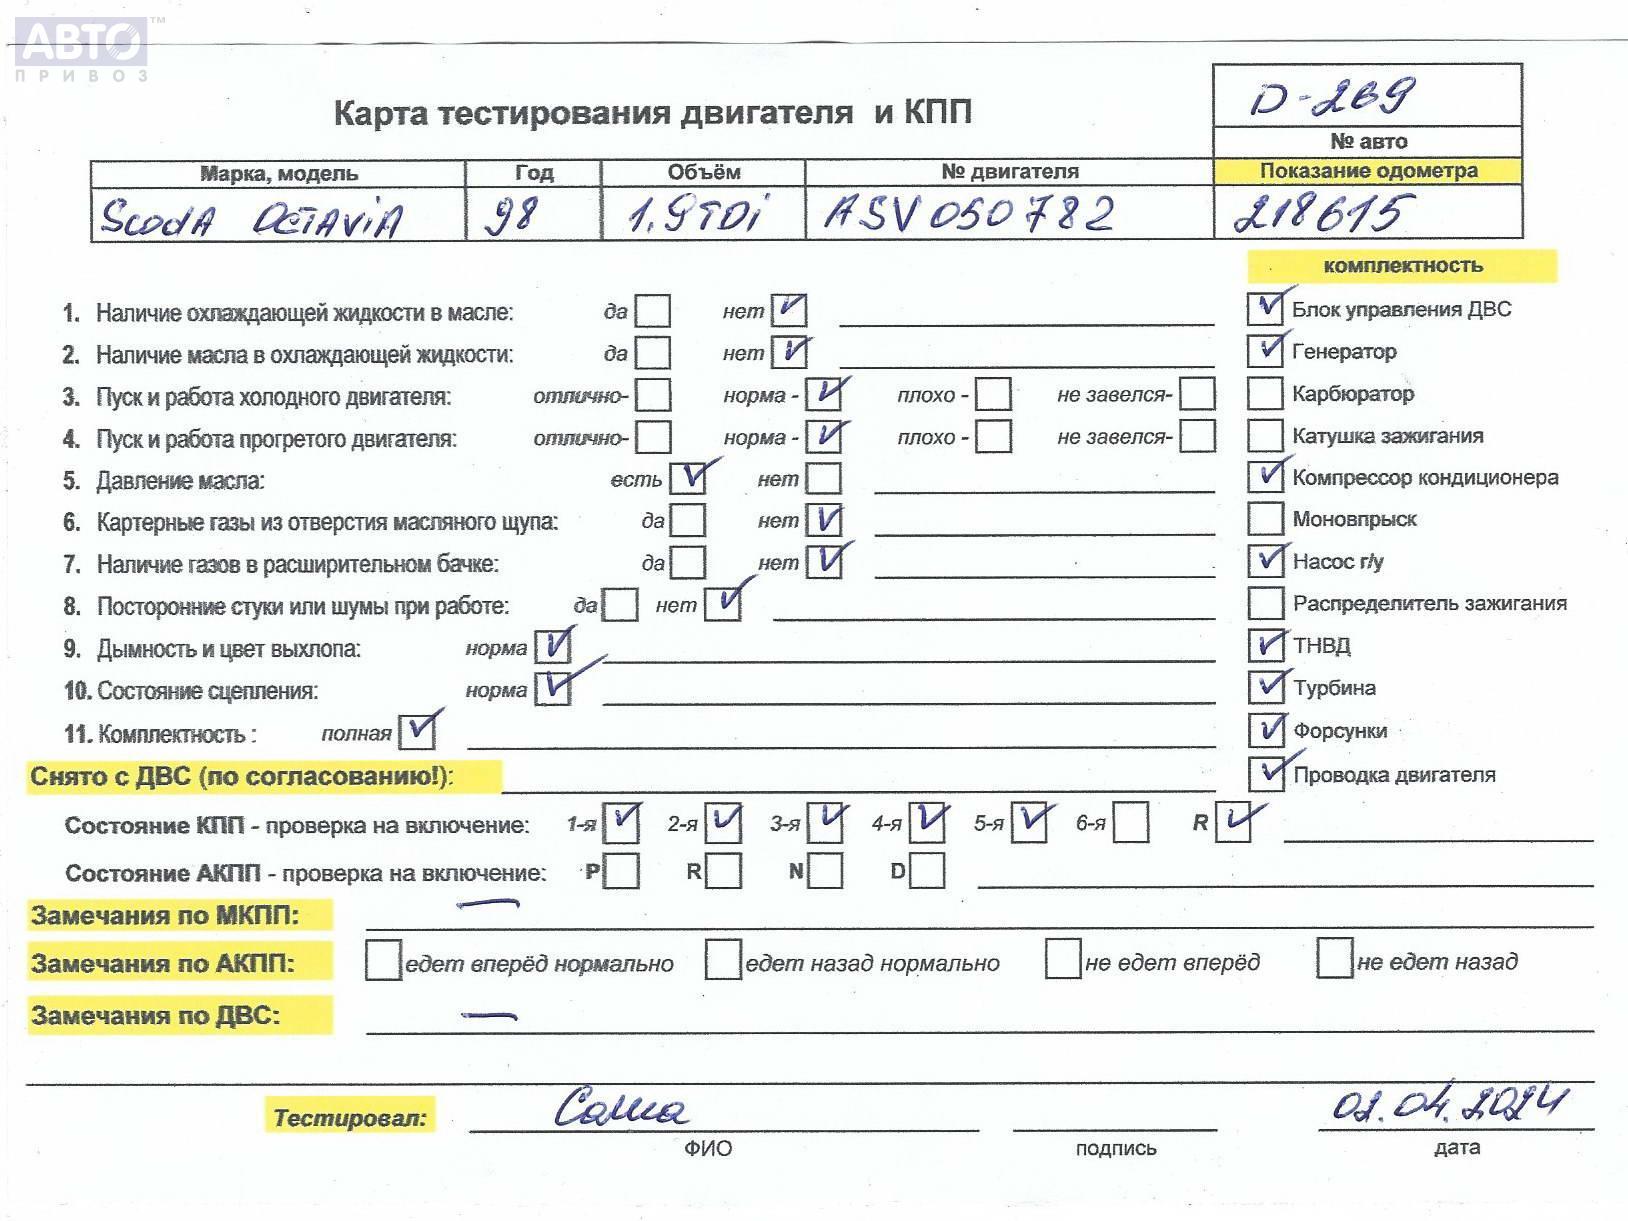 АВТО™
ПРИВОЗ
D-269
№ авто
Карта тестирования двигателя и КПП
Марка, модель Год Объём № двигателя Показание одометра
ScodA OCTAViA 98 1.9TDi ASV050782 218615
комплектность
1. Наличие охлаждающей жидкости в масле: да нет ✓
2. Наличие масла в охлаждающей жидкости: да нет ✓
3. Пуск и работа холодного двигателя: отлично- норма - ✓ плохо - не завелся-
4. Пуск и работа прогретого двигателя: отлично- норма - ✓ плохо - не завелся-
5. Давление масла: есть ✓ нет
6. Картерные газы из отверстия масляного щупа: да нет ✓
7. Наличие газов в расширительном бачке: да нет ✓
8. Посторонние стуки или шумы при работе: да нет ✓
9. Дымность и цвет выхлопа: норма ✓
10. Состояние сцепления: норма ✓
11. Комплектность : полная ✓
✓ Блок управления ДВС
✓ Генератор
Карбюратор
Катушка зажигания
✓ Компрессор кондиционера
Моновпрыск
✓ Насос г/у
Распределитель зажигания
✓ ТНВД
✓ Турбина
✓ Форсунки
✓ Проводка двигателя
Снято с ДВС (по согласованию!):
Состояние КПП - проверка на включение: 1-я ✓ 2-я ✓ 3-я ✓ 4-я ✓ 5-я ✓ 6-я R ✓
Состояние АКПП - проверка на включение: P R N D
Замечания по МКПП: —
Замечания по АКПП: едет вперёд нормально едет назад нормально не едет вперёд не едет назад
Замечания по ДВС: —
Тестировал: Саша 02.04.2024
ФИО подпись дата